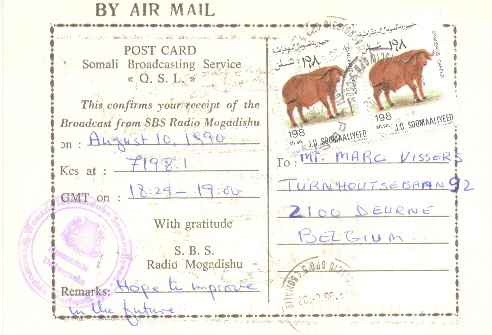 BY AIR MAIL
POST CARD
Somali Broadcasting Service
« Q. S. L. »
This confirms your receipt of the
Broadcast from SBS Radio Mogadishu
on : August 10, 1990
Kcs at : 7198.1
GMT on : 18:29 - 19:00
With gratitude
S. B. S.
Radio Mogadishu
Remarks: Hope to improve
in the future
١٩٨
١٩٨
198
198
J.D. SOOMAALIYEED
J.D. SOOMAALIYEED
To : Mr. MARC VISSERS
TURNHOUTSEBAAN 92
2100 DEURNE
BELGIUM